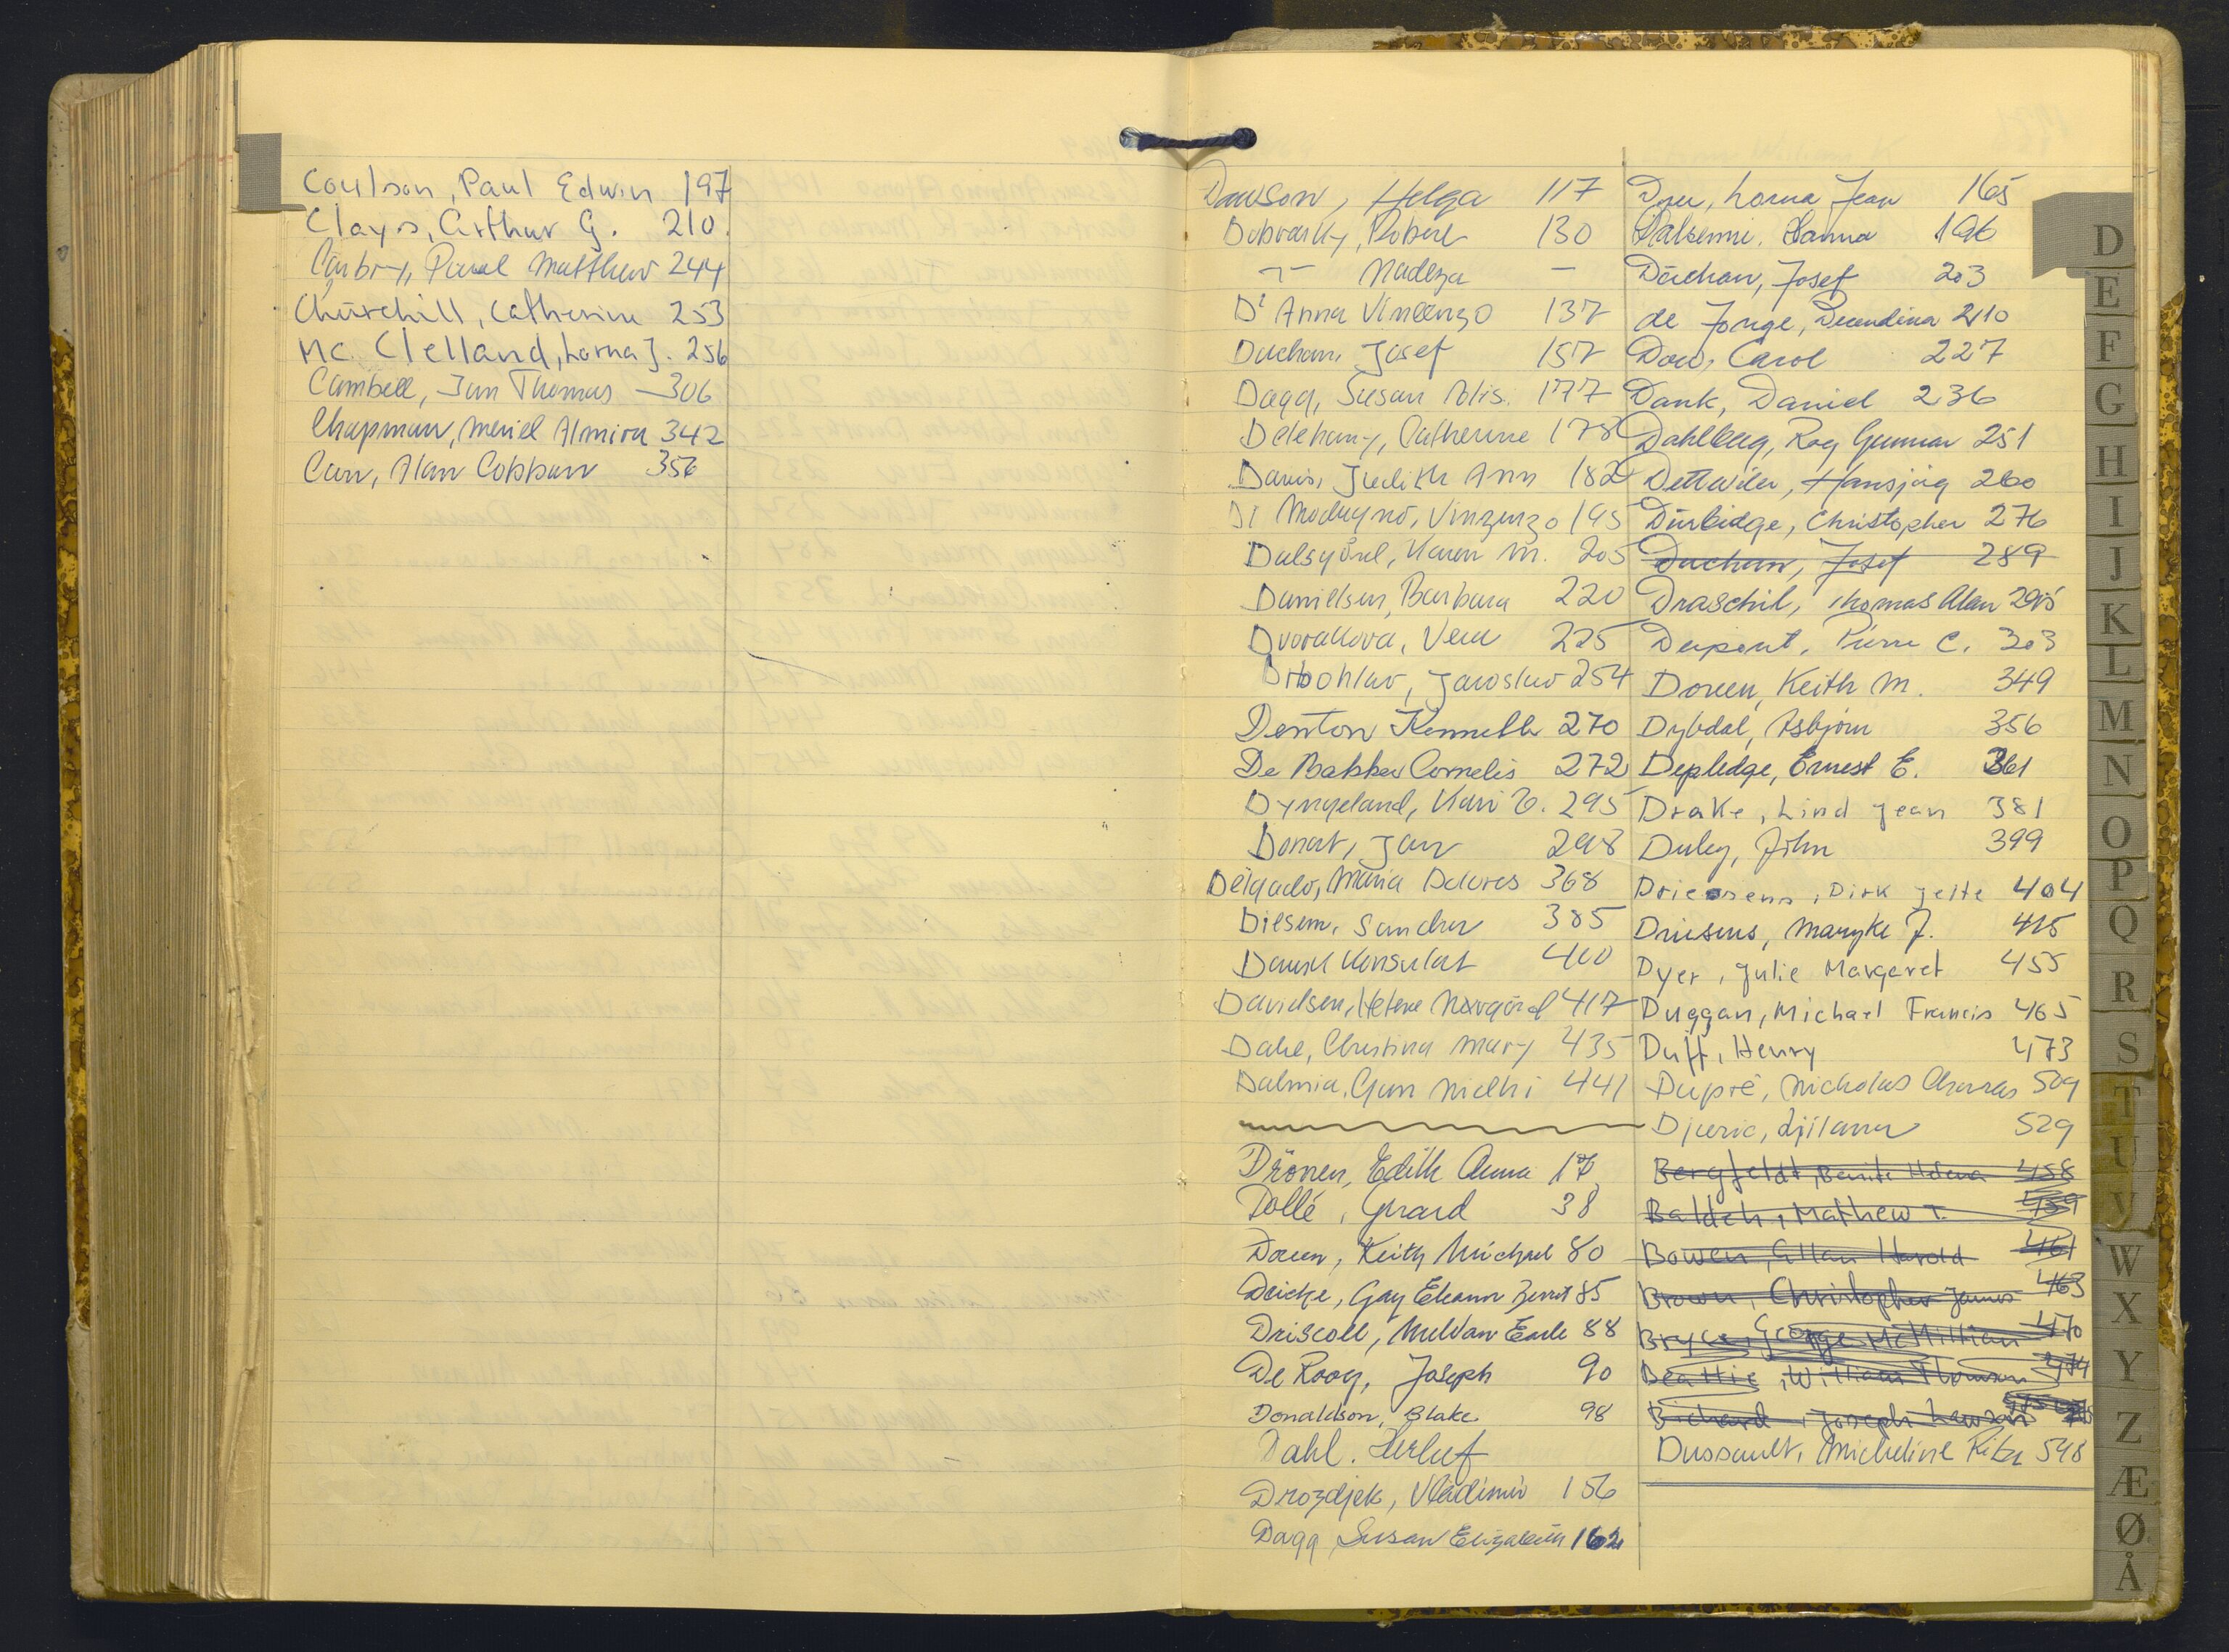 Coulson, Paul Edwin 197
Clays, Arthur G. 210.
Paul Matthew 244
Churchill, Catherine 253
Mc. Clelland, Lorna J. 256
Cambell, Jan Thomas — 306
Chapman, Meriel Almira 342
Carr, Alan Cobban 356
Dawson, Helga 117
Dobvarsky, Robert 130
— Nadeza —
D'Anna Vincenzo 137
Duchan, Josef 157
Dagg, Susan Elis. 177
Delehanty, Catherine 178
Davis, Judith Ann 182
Di Modugno, Vinzenzo 195
Dalsgård, Karen M. 205
Danielsen, Barbara 220
Dvorakova, Vera 225
Drbohlav, Jaroslav 254
Denton Kenneth 270
De Bakker Cornelis 272
Dyngeland, Kari E. 295
Donat, Jan 298
Delgado, Maria Dolores 368
Diesem, Sandra 385
Dansk Konsulat 400
Davidsen, Helene Norgård 417
Dahl, Christina Mary 435
Dalmia, Gun Nidhi 441
Drönen, Edith Anna 17
Dollé, Gerard 38
Doreen, Keith Michael 80
Deicke, Gay 85
Driscoll, Earle 88
De Rooy, Joseph 90
Donaldson, Blake 98
Dahl. Herluf
Drozdjek, Vladimir 156
Dagg, Susan Elizabeth 162
Dyer, Lorna Jean 165
Hanna 196
Duchan, Josef 203
de Jonge, 210
Dow, Carol 227
Dank, Daniel 236
Dahlberg, Roy Gunnar 251
Dettwiler, Hansjörg 260
Durbidge, Christopher 276
Duchan, Josef 289
Draschil, Thomas Alan 295
Dupont, Pierre C. 303
Doreen, Keith M. 349
Dybdal, Asbjörn 356
Depledge, Ernest E. 361
Drake, Lind Jean 381
Duley, John 399
Driessens, Dirk Jelte 404
Driesens, Maryke J. 415
Dyer, Julie Margaret 455
Duggan, Michael Francis 465
Duff, Henry 473
Dupré, Nicholas Charras 509
Djuric, Ljiljana 529
Bergfeldt, Berit Helena 458
Baldch, Mathew T. 459
Bowen, Allan Harold 461
Brown, Christopher James 463
Bryce, George McMillian 470
Beattie, William Thomson 474
Bichard, Joseph Lawson
Dussault, Micheline Rita 548
D
E
F
G
H
I
J
K
L
M
N
O
P
Q
R
S
T
U
V
W
X
Y
Z
Æ
Ø
Å